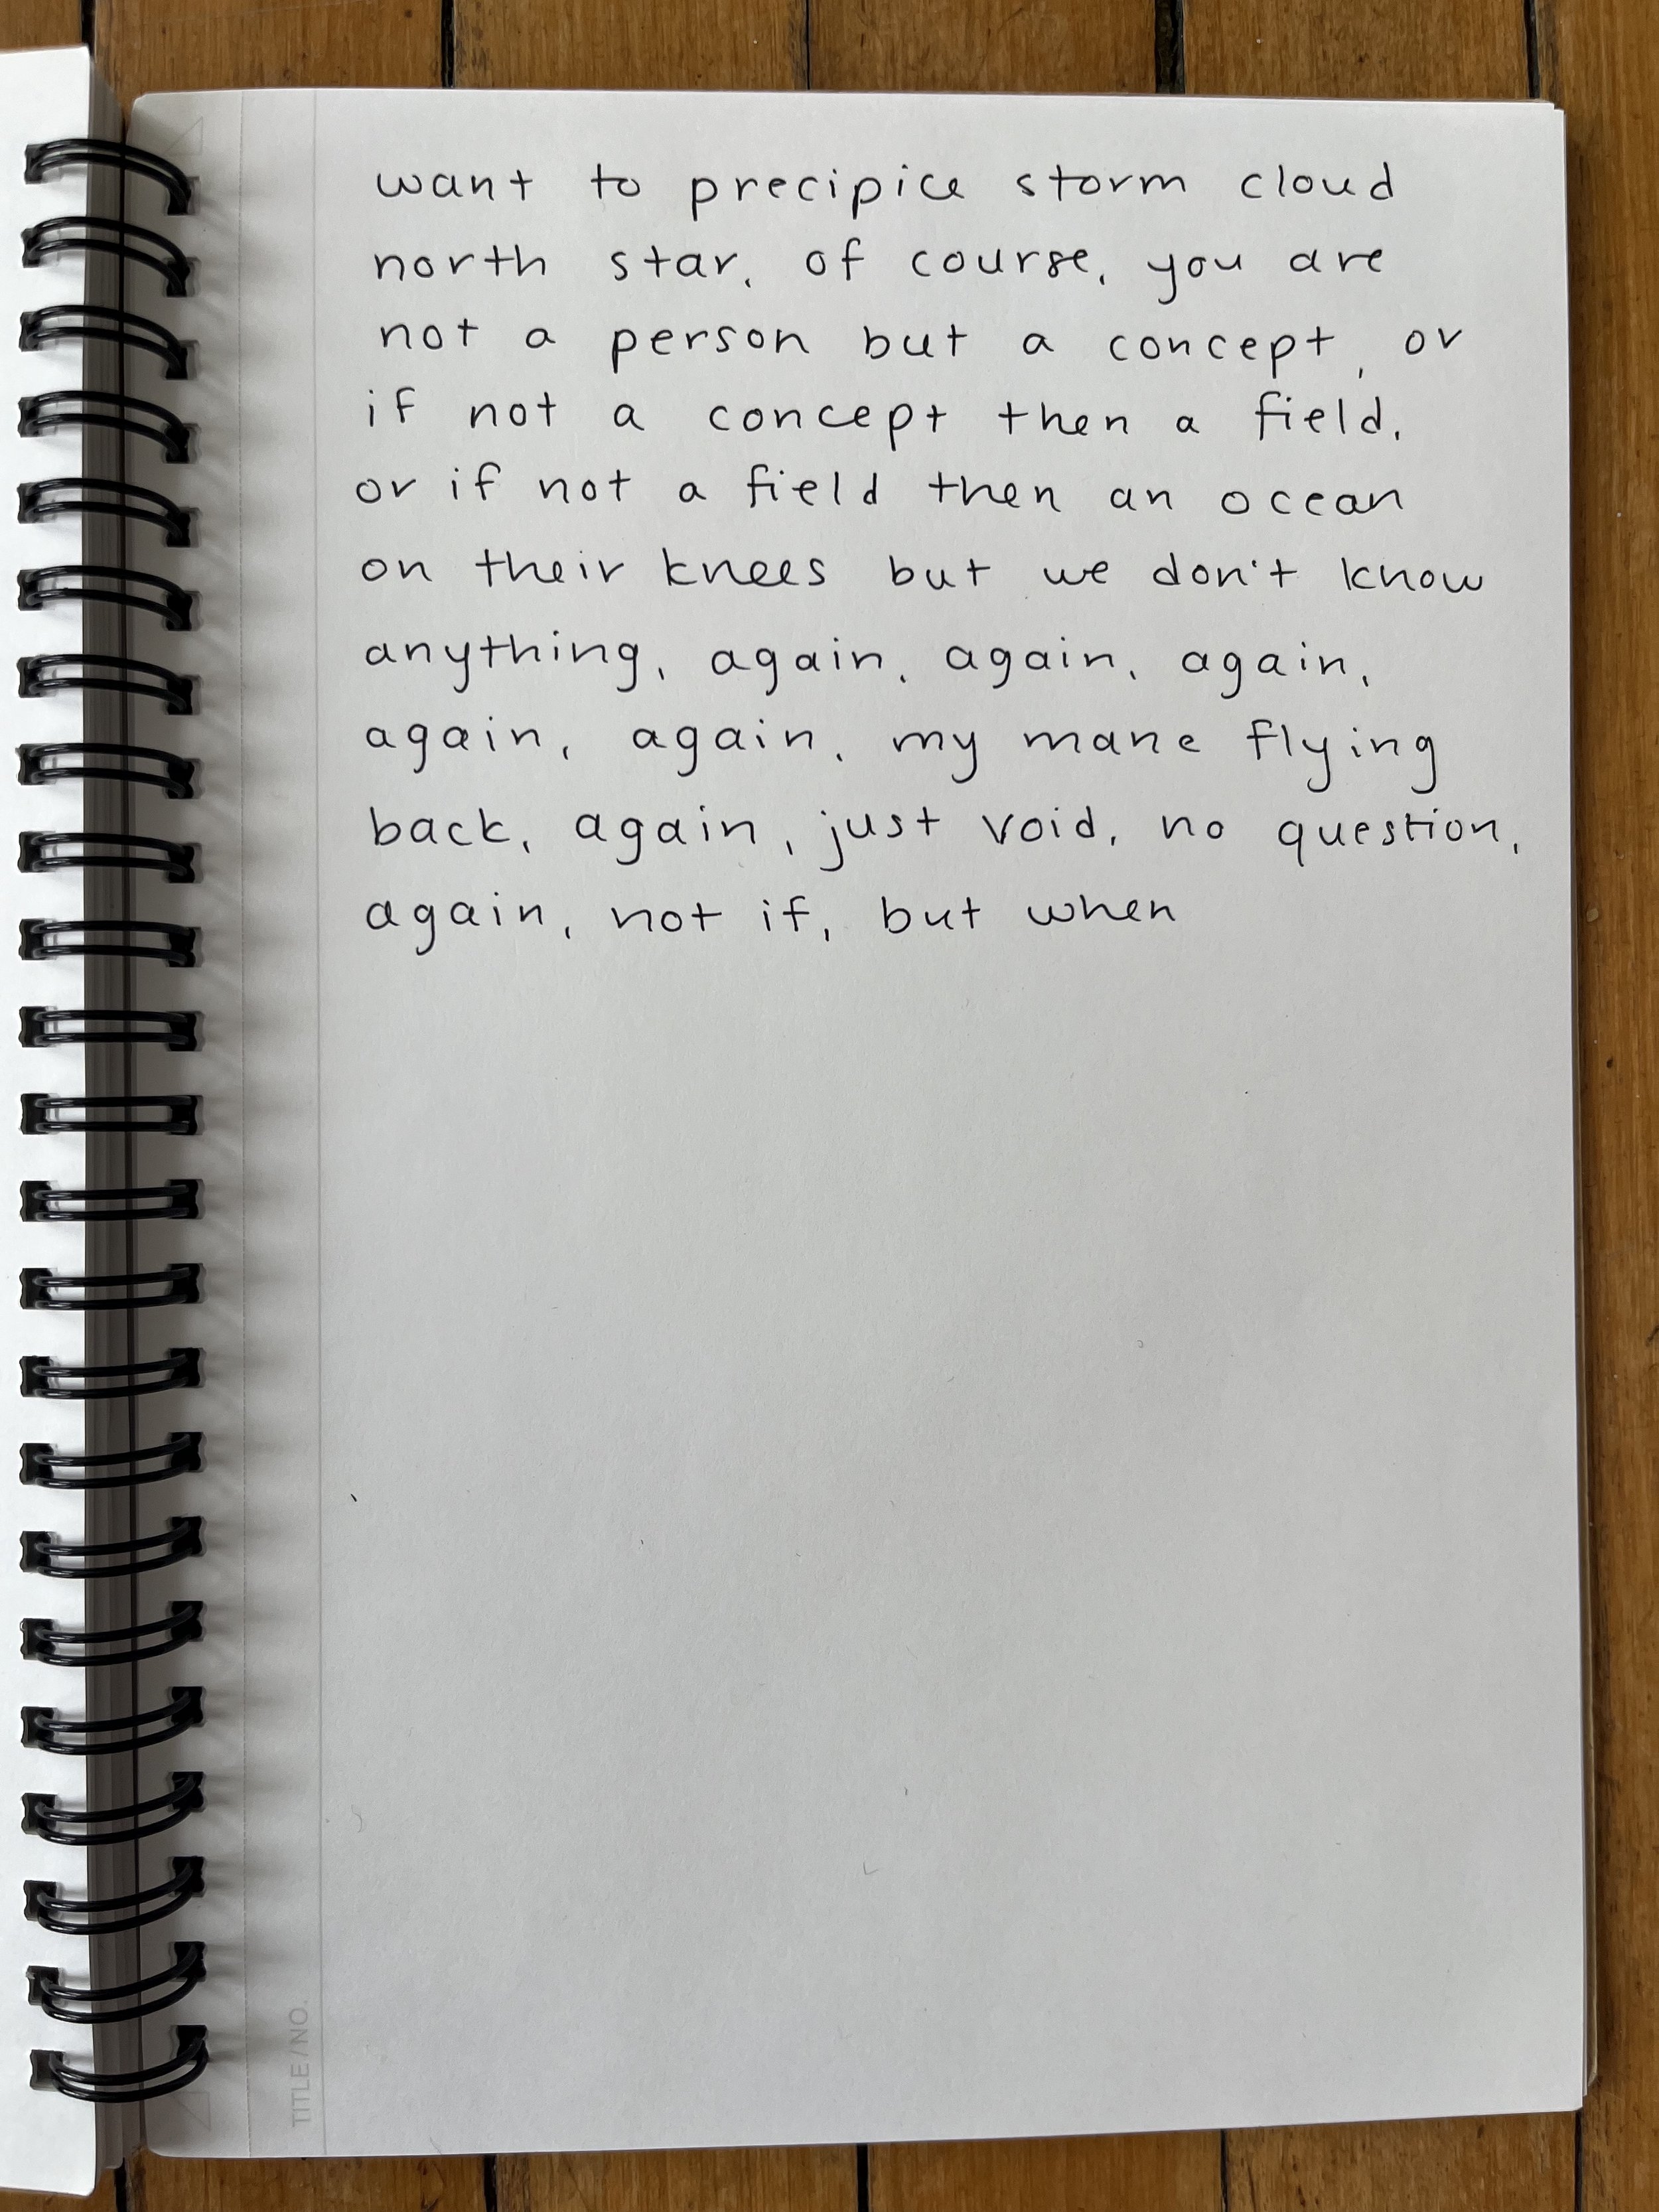 want to precipice storm cloud
north star, of course, you are
not a person but a concept, or
if not a concept then a field,
or if not a field then an ocean
on their knees but we don't know
anything, again, again, again,
again, again, my mane flying
back, again, just void, no question,
again, not if, but when
TITLE / NO.